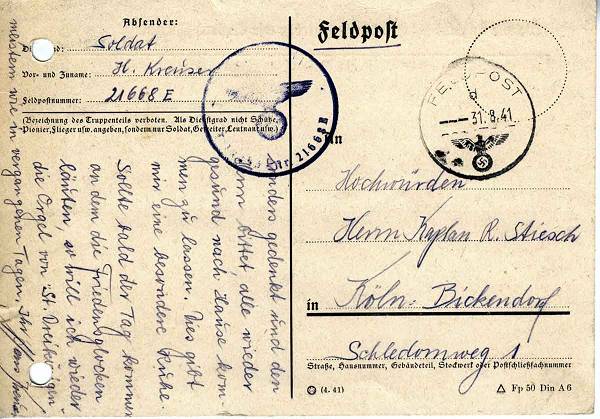 Absender:
Soldat
Vor- und Zuname: H. Kreuser
Feldpostnummer: 21668 E
(Bezeichnung des Truppenteils verboten. Als Dienstgrad nicht Schütze,
Pionier, Flieger usw. angeben, sondern nur Soldat, Gefreiter, Leutnant usw.)
Nr. 21668 E
Feldpost
FELDPOST
d
31.8.41
An
Hochwürden
Herrn Kaplan R. Stiesch
in Köln-Bickendorf
Schledornweg 1
Straße, Hausnummer, Gebäudeteil, Stockwerk oder Postschließfachnummer
(4. 41)
Fp 50 Din A 6
sonders gedenkt und den
Herrn bittet, alle wieder
gesund nach Hause kom-
men zu lassen. Dies gilt
mir eine besondere
Sollte bald der Tag kommen
an dem die Friedensglocken
läuten, so will ich wieder
die Orgel von St. Dreikönigen
meistern wie in vergangenen Tagen. Ihr